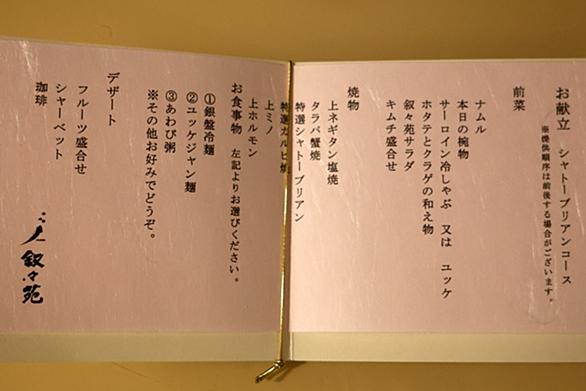 お献立　シャトーブリアンコース
※提供順序は前後する場合がございます。
前菜
ナムル
本日の椀物
サーロイン冷しゃぶ　又は　ユッケ
ホタテとクラゲの和え物
叙々苑サラダ
キムチ盛合せ
焼物
上ネギタン塩焼
タラバ蟹焼
特選シャトーブリアン
特選カルビ焼
上ミノ
上ホルモン
お食事物　左記よりお選びください。
①銀盤冷麺
②ユッケジャン麺
③あわび粥
※その他お好みでどうぞ。
デザート
フルーツ盛合せ
シャーベット
珈琲
叙々苑